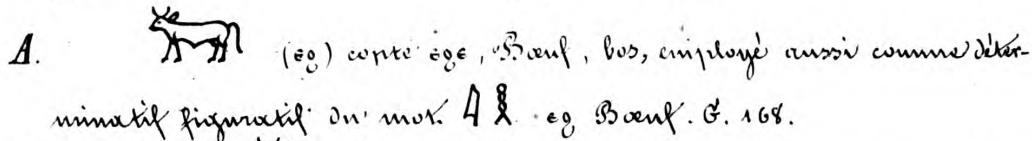 A. 𓃒 (ⲉϩ) copte ⲉϩⲉ, Bœuf, bos, employé aussi comme déter-
minatif figuratif du mot. 𓇋𓎛 ⲉϩ Bœuf. G. 168.